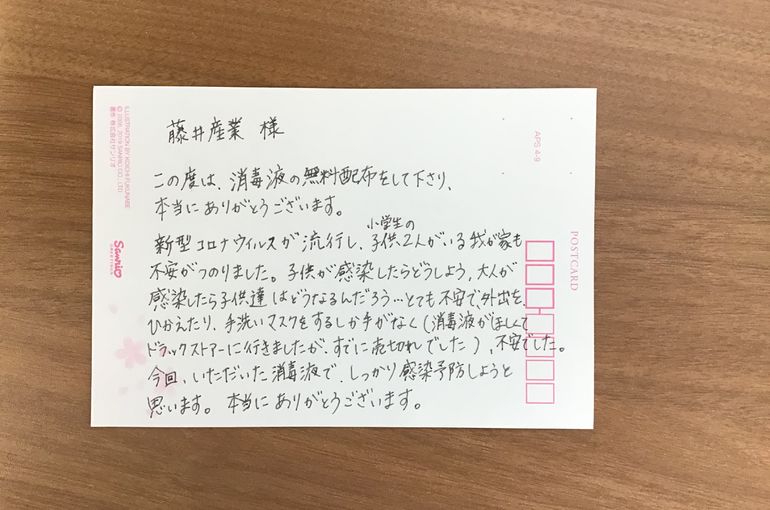 藤井産業 様
この度は、消毒液の無料配布をして下さり、
本当にありがとうございます。
小学生の
新型コロナウィルスが流行し、子供2人がいる我が家も
不安がつのりました。子供が感染したらどうしよう、大人が
感染したら子供達はどうなるんだろう…とても不安で外出を
ひかえたり、手洗いマスクをするしか手がなく(消毒液がほしくて
ドラックストアーに行きましたが、すでに売切れでした)、不安でした。
今回、いただいた消毒液で、しっかり感染予防しようと
思います。本当にありがとうございます。
POSTCARD
APS 4-9
Sanrio